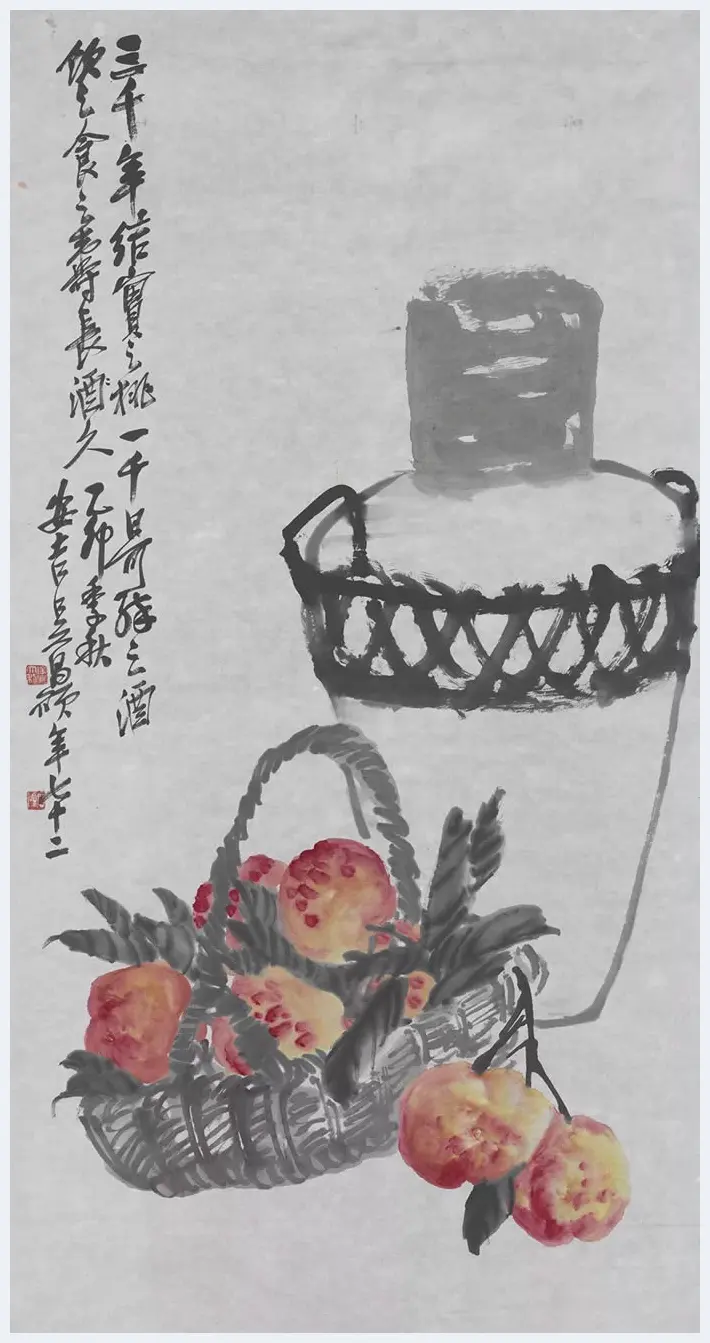 三千年結實之桃一千日醉之酒
飲之食之老壽長酒久
乙卯季秋
安吉吳昌碩年七十二